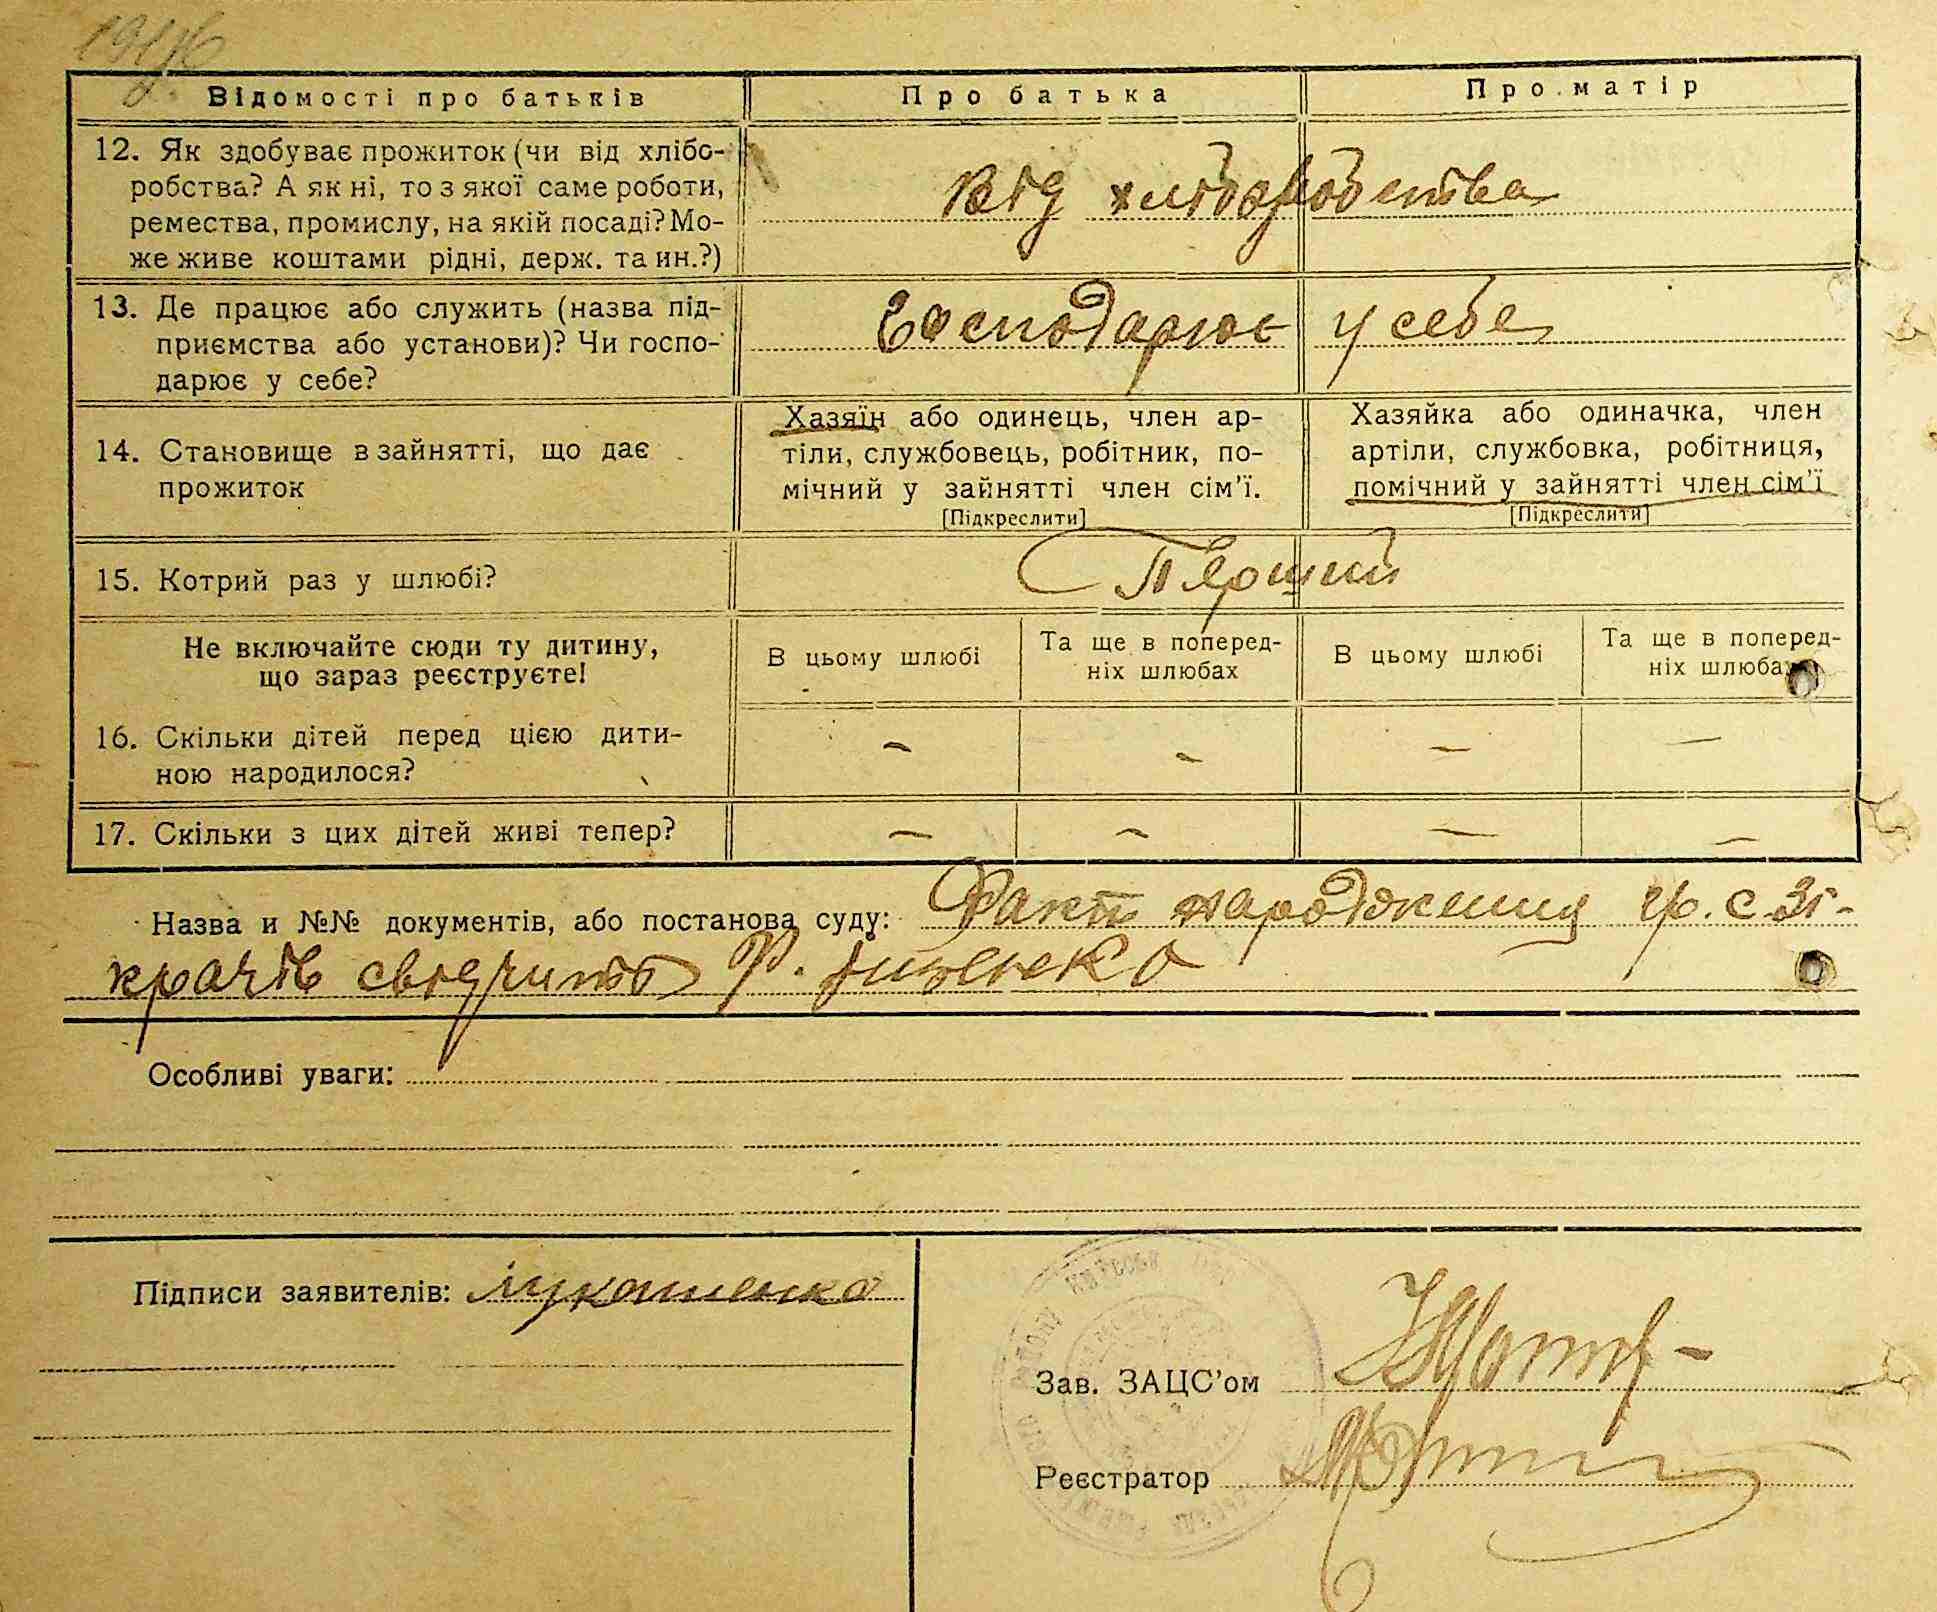 Відомості про батьків
Про батька
Про матір
12. Як здобуває прожиток (чи від хлібо-
робства? А як ні, то з якої саме роботи,
ремества, промислу, на якій посаді? Мо-
же живе коштами рідні, держ. та ин.?)
Від хліборобства
13. Де працює або служить (назва під-
приємства або установи)? Чи госпо-
дарює у себе?
Господарює у себе
14. Становище в зайнятті, що дає
прожиток
Хазяїн або одинець, член ар-
тіли, службовець, робітник, по-
мічний у зайнятті член сім'ї.
[Підкреслити]
Хазяйка або одиначка, член
артіли, службовка, робітниця,
помічний у зайнятті член сім'ї
[Підкреслити]
15. Котрий раз у шлюбі?
Перший
Не включайте сюди ту дитину,
що зараз реєструєте!
В цьому шлюбі
Та ще в поперед-
ніх шлюбах
В цьому шлюбі
Та ще в поперед-
ніх шлюбах
16. Скільки дітей перед цією дити-
ною народилося?
– – – –
17. Скільки з цих дітей живі тепер?
– – – –
Назва и №№ документів, або постанова суду: Факт народження гр. с. Зі-
крачів свідчить
Особливі уваги:
Підписи заявителів: Лукашенко
Зав. ЗАЦС'ом
Реєстратор